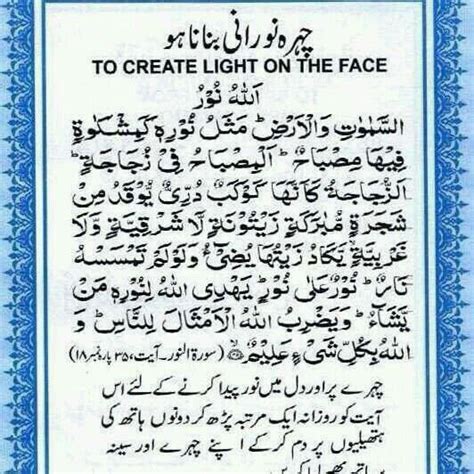 چہرہ نورانی بنانا ہو
TO CREATE LIGHT ON THE FACE
اَللّٰهُ نُوْرُ
السَّمٰوٰتِ وَالْاَرْضِ ؕ مَثَلُ نُوْرِهٖ كَمِشْكٰوةٍ
فِيْهَا مِصْبَاحٌ ؕ اَلْمِصْبَاحُ فِيْ زُجَاجَةٍ ؕ
اَلزُّجَاجَةُ كَاَنَّهَا كَوْكَبٌ دُرِّيٌّ يُّوْقَدُ مِنْ
شَجَرَةٍ مُّبٰرَكَةٍ زَيْتُوْنَةٍ لَّا شَرْقِيَّةٍ وَّلَا
غَرْبِيَّةٍ يَّكَادُ زَيْتُهَا يُضِيْٓءُ وَلَوْ لَمْ تَمْسَسْهُ
نَارٌ ؕ نُوْرٌ عَلٰى نُوْرٍ ؕ يَهْدِى اللّٰهُ لِنُوْرِهٖ مَنْ
يَّشَآءُ ؕ وَيَضْرِبُ اللّٰهُ الْاَمْثَالَ لِلنَّاسِ ؕ وَ
اللّٰهُ بِكُلِّ شَيْءٍ عَلِيْمٌ (سورۃ النور۔ آیت، ۳۵ پارہ نمبر ۱۸)
چہرے پر اور دل میں نور پیدا کرنے کے لئے اس
آیت کو روزانہ ایک مرتبہ پڑھ کر دونوں ہاتھ کی
ہتھیلیوں پر دم کر کے اپنے چہرے اور سینہ